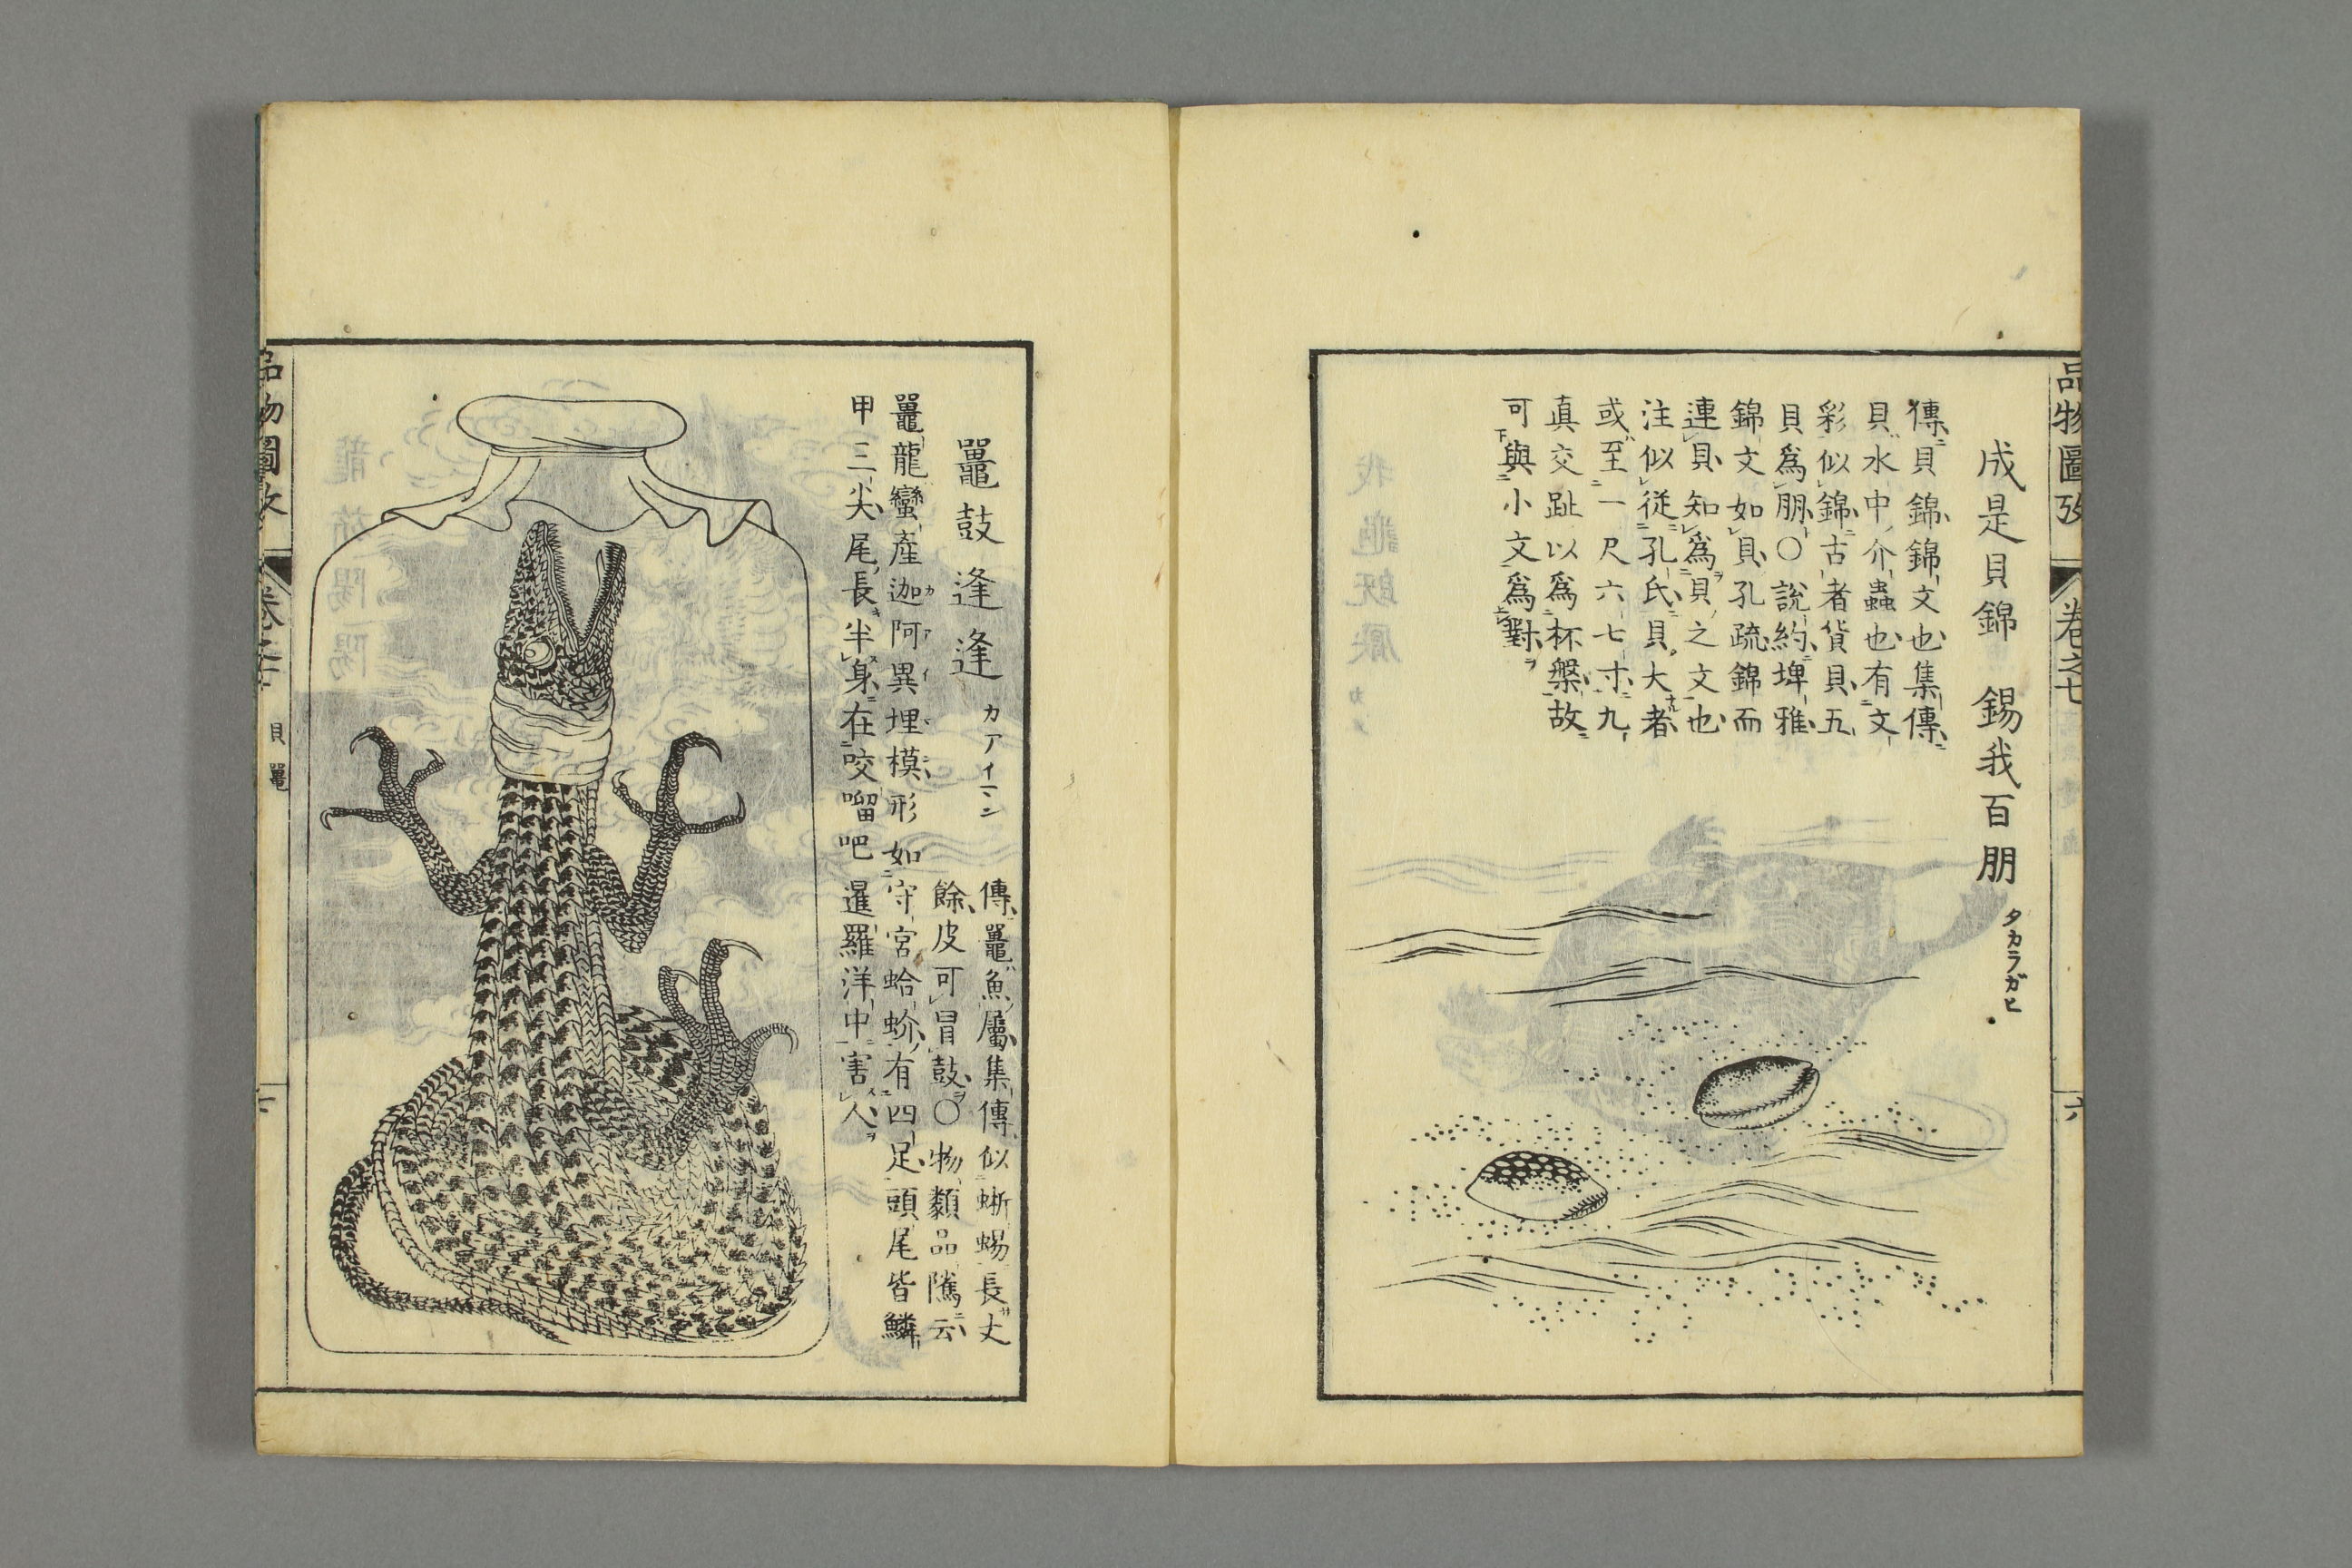 品物圖攷
卷之七
六
成是貝錦　錫我百朋 タカラガヒ
傳貝錦錦文也集傳
貝水中介蟲也有文
彩似錦古者貨貝五
貝爲朋○說約埤雅
錦文如貝孔疏錦而
連貝知爲貝之文也
注似從孔氏貝大者
或至一尺六七寸九
真交趾以爲杯盤故
可與小文爲對
鼉鼓逢逢 カアイマン
傳鼉魚屬集傳似蜥蜴長丈
餘皮可冒鼓○物類品隲云
鼉龍蠻産迦阿異埋模形如守宮蛤蚧有四足頭尾皆鱗
甲三尖尾長半身在咬𠺕吧暹羅洋中害人
品物圖攷
卷之七
貝鼉